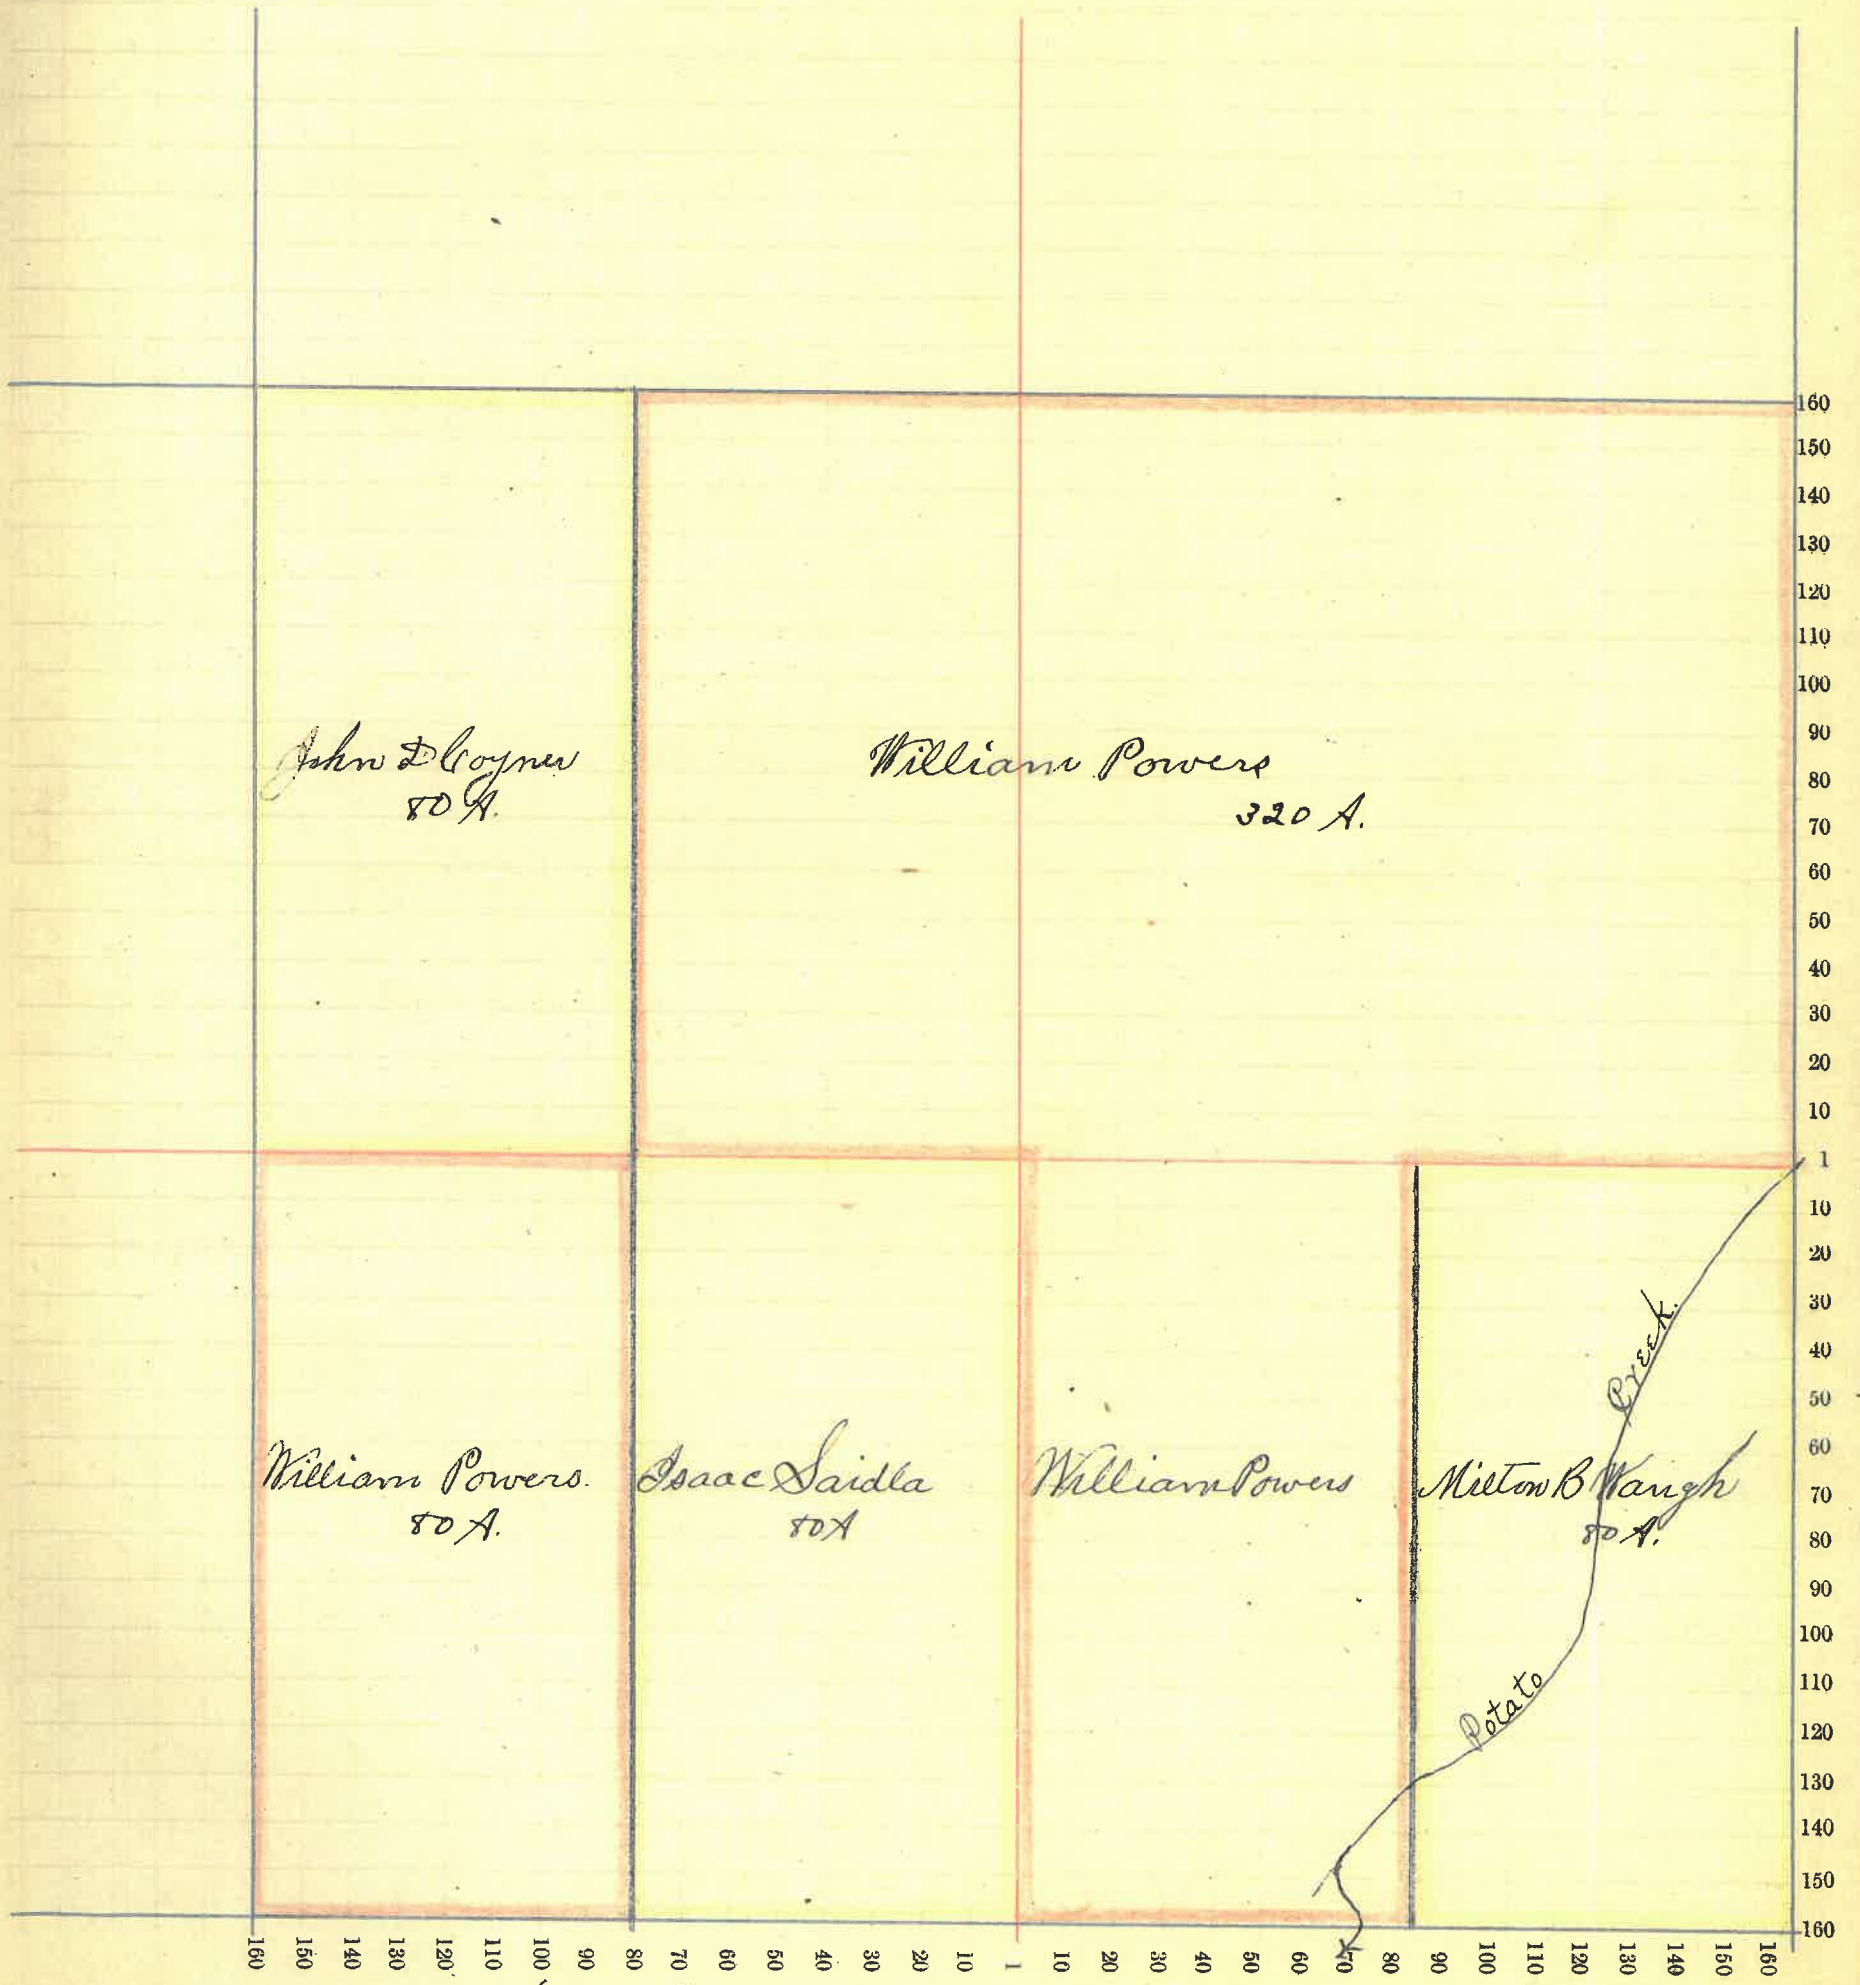 John D Coyner
80 A.
William Powers
320 A.
William Powers.
80 A.
Isaac Saidla
80 A
William Powers
Milton B Waugh
80 A.
Creek.
Potato
160
150
140
130
120
110
100
90
80
70
60
50
40
30
20
10
1
10
20
30
40
50
60
70
80
90
100
110
120
130
140
150
160
160 150 140 130 120 110 100 90 80 70 60 50 40 30 20 10 1 10 20 30 40 50 60 70 80 90 100 110 120 130 140 150 160